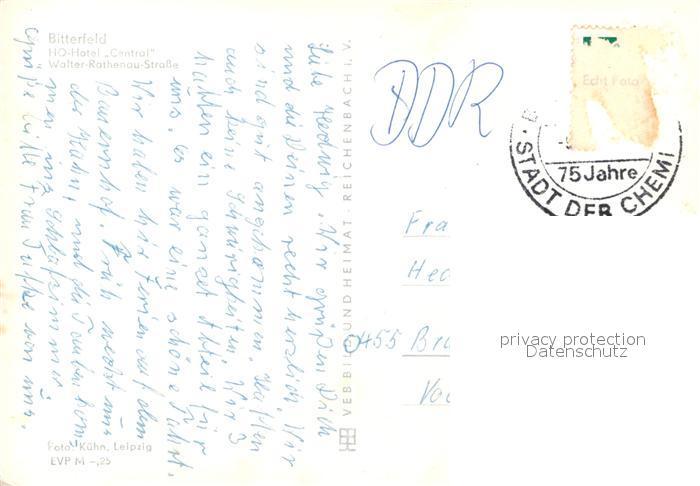 Bitterfeld
HO-Hotel „Central"
Walter-Rathenau-Straße
Liebe Hedwig. Wir grüßen Dich
und die Deinen recht herzlich. Wir
sind gut angekommen. Hatten
auch keine Schwirigkeiten. Wir 3
hatten ein ganzes Abteil für
uns, es war eine schöne Fahrt.
Wir haben hir Ferien auf dem
Bauernhof. Früh weckt uns
der Hahn, und die Tauben kom-
men ins Schlafzimmer.
Grüße bitte Frau von uns.
Foto: Kühn, Leipzig
EVP M –,25
VEB BILD UND HEIMAT · REICHENBACH I. V.
DDR
Echt Foto
75 Jahre
STADT DER CHEMI
Fra
Hed
0455 Bra
privacy protection
Datenschutz